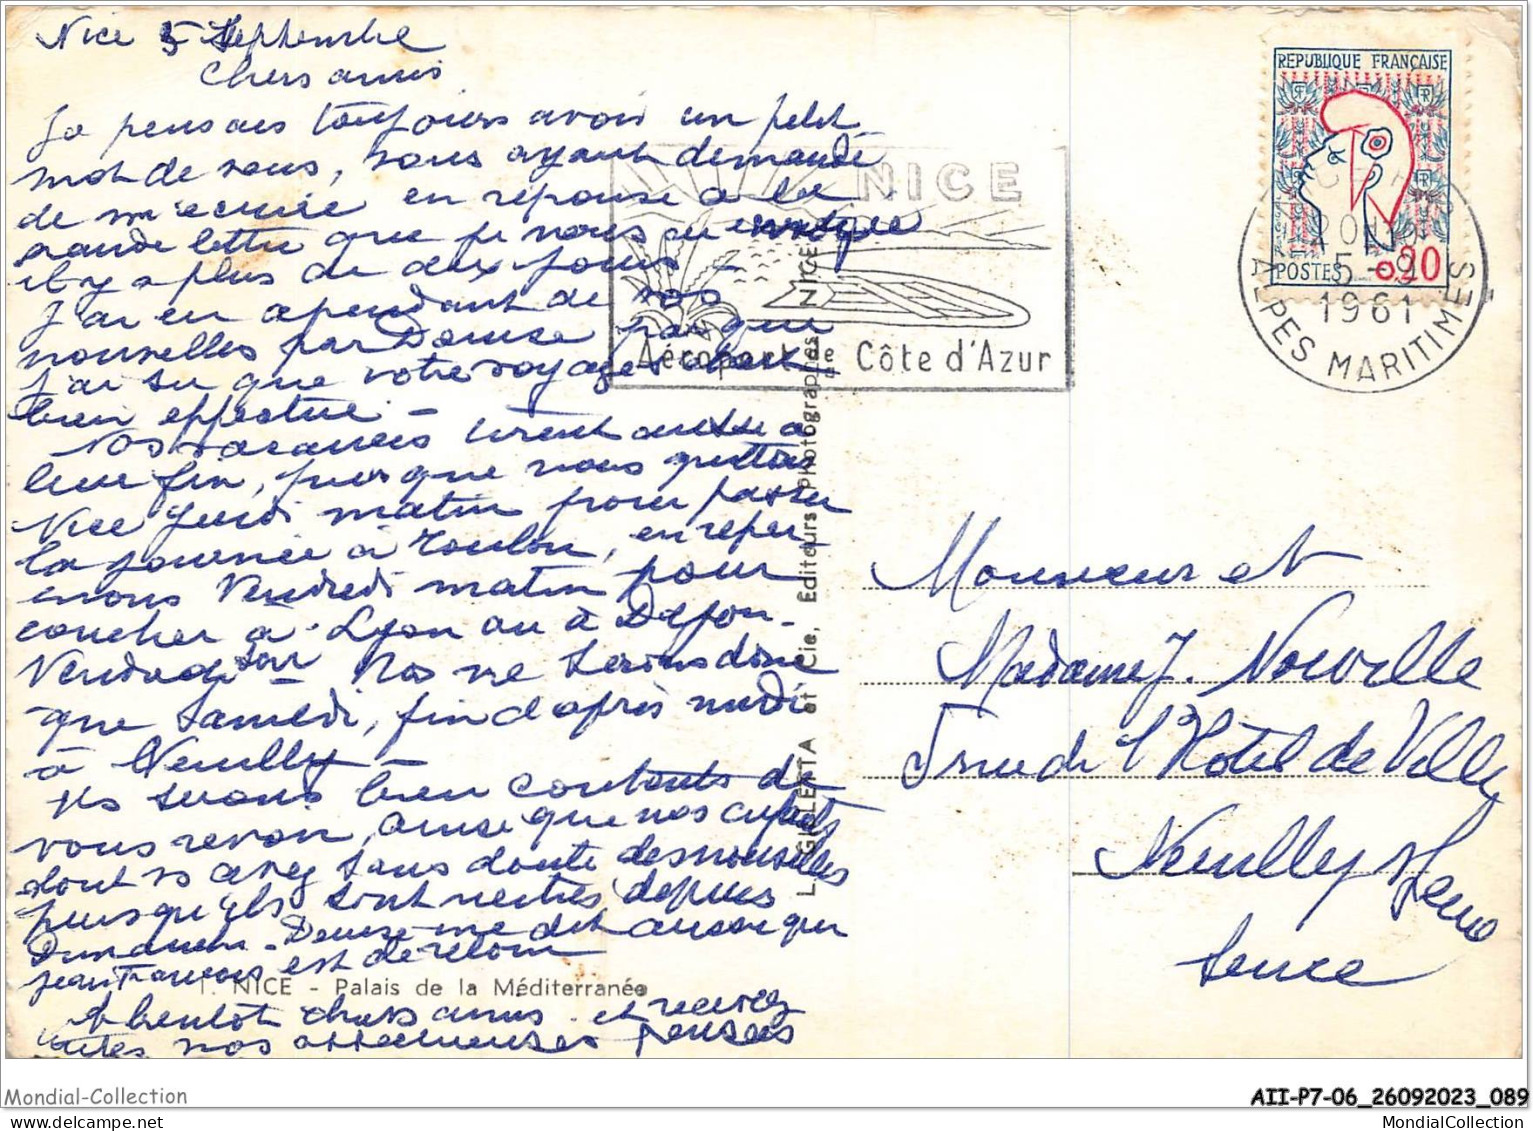 Nice 5 Septembre
Chers amis
Je pensais toujours avoir un petit
mot de vous, vous ayant demandé
de m'écrire en réponse à la
grande lettre que je vous ai envoyée
il y a plus de dix jours -
J'ai eu cependant de vos
nouvelles par Denise puisque
J'ai su que votre voyage s'était
bien effectué -
Nos vacances tirent aussi à
leur fin, puisque nous quittons
Nice Jeudi matin pour passer
la journée à Toulon, en repar-
tirons Vendredi matin pour
coucher à Lyon ou à Dijon -
Vendredi soir - Nos ne serons donc
que Samedi, fin d'après midi
à Neuilly -
Ns serons bien contents de
vous revoir, ainsi que nos
dont vs avez sans doute des nouvelles
puisqu'ils sont rentrés depuis
Dimanche - Denise me dit aussi que
Jean François est de retour
A bientôt chers amis et recevez
toutes nos affectueuses pensées
1. NICE - Palais de la Méditerranée
L. GILETTA et Cie, Éditeurs Photographes NICE
NICE
Aéroport de Nice Côte d'Azur
REPUBLIQUE FRANÇAISE
POSTES 0.20
5 - 9
1961
ALPES MARITIMES
Monsieur et
Madame J. Nouvelle
7 rue de l'Hôtel de Ville
Neuilly s/Seine
Seine
Mondial-Collection
AII-P7-06_26092023_089
MondialCollection